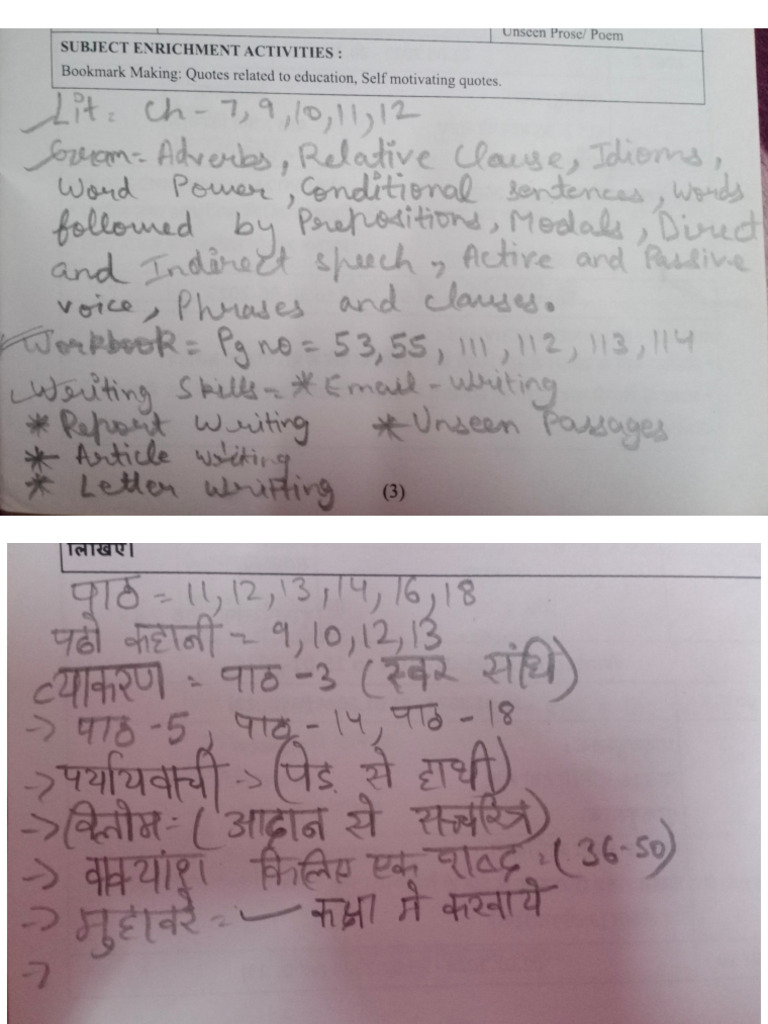 Unseen Prose/ Poem
SUBJECT ENRICHMENT ACTIVITIES :
Bookmark Making: Quotes related to education, Self motivating quotes.
Lit = Ch - 7, 9, 10, 11, 12
Gram = Adverbs, Relative Clause, Idioms,
Word Power, Conditional sentences, words
followed by Prepositions, Modals, Direct
and Indirect speech, Active and Passive
voice, Phrases and clauses.
Workbook = Pg no = 53, 55, 111, 112, 113, 114
Writing Skills - * Email - writing
* Report Writing * Unseen Passages
* Article writing
* Letter writting
(3)
लिखिए।
पाठ = 11, 12, 13, 14, 16, 18
पढो कहानी = 9, 10, 12, 13
व्याकरण = पाठ -3 (स्वर संधि)
-> पाठ -5, पाठ -14, पाठ -18
-> पर्यायवाची -> (पेड़ से हाथी)
-> विलोम = (आदान से सच्चरित्र)
-> वाक्यांश किलिए एक शब्द = (36-50)
-> मुहावरे = कक्षा मे करवाये
->